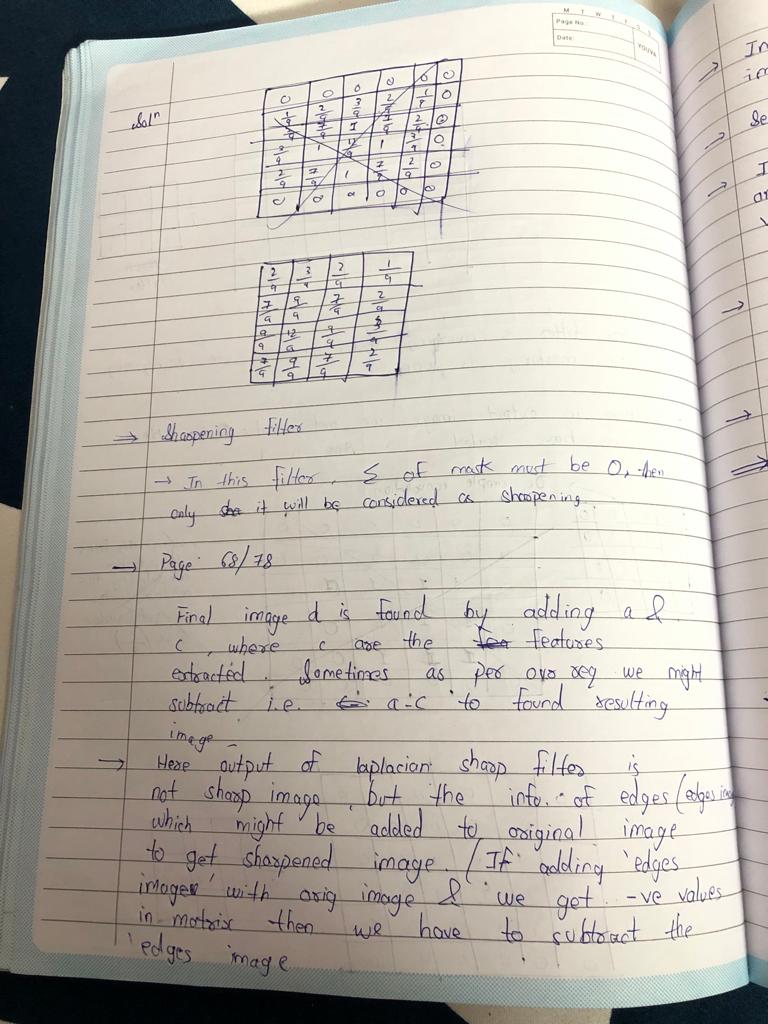 M T W T F S S
Page No.
Date:
YOUVA
Solⁿ
0 0 0 0 0 0
1/9 2/9 3/9 2/9 1/9 0
0 0 0 0 0 0
2/9 3/9 2/9 1/9
7/9 9/9 7/9 2/9
9/9 12/9 9/9 3/9
7/9 9/9 7/9 2/9
⇒ Sharpening filter
→ In this filter, Σ of mask must be 0, then
only it will be considered as sharpening
→ Page: 68/78
Final image d is found by adding a &
c, where c are the features
extracted. Sometimes as per our req we might
subtract i.e. a-c to found resulting
image
→ Here output of laplacian sharp filter is
not sharp image, but the info. of edges (edges
which might be added to original image
to get sharpened image. (If adding 'edges
image' with orig image & we get -ve values
in matrix then we have to subtract the
'edges image
→ In
→ Se
→ I
→
→
⇒